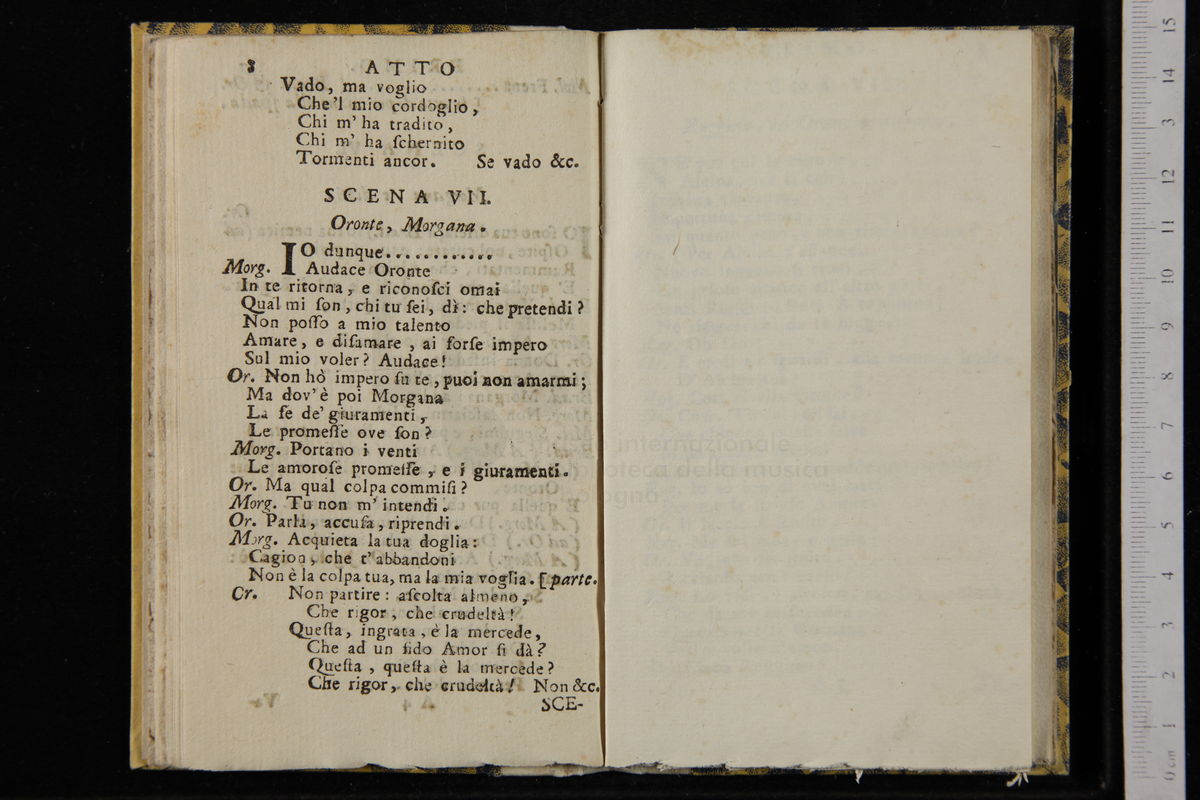 8 ATTO
Vado, ma voglio
Che'l mio cordoglio,
Chi m' ha tradito,
Chi m' ha ſchernito
Tormenti ancor. Se vado &c.
SCENA VII.
Oronte, Morgana.
IO dunque............
Morg. Audace Oronte
In te ritorna, e riconoſci omai
Qual mi ſon, chi tu ſei, dì: che pretendi?
Non poſſo a mio talento
Amare, e diſamare, ai forſe impero
Sul mio voler? Audace!
Or. Non hò impero ſu te, puoi non amarmi;
Ma dov'è poi Morgana
La fe de' giuramenti,
Le promeſſe ove ſon?
Morg. Portano i venti
Le amoroſe promeſſe, e i giuramenti.
Or. Ma qual colpa commiſi?
Morg. Tu non m' intendi.
Or. Parla, accuſa, riprendi.
Morg. Acquieta la tua doglia:
Cagion, che t' abbandoni
Non è la colpa tua, ma la mia voglia. [parte.
Or. Non partire: aſcolta almeno,
Che rigor, che crudeltà!
Queſta, ingrata, è la mercede,
Che ad un fido Amor ſi dà?
Queſta, queſta è la mercede?
Che rigor, che crudeltà! Non &c.
SCE-
internazionale
biblioteca della musica
bologna
0 cm 1 2 3 4 5 6 7 8 9 10 11 12 3 14 15